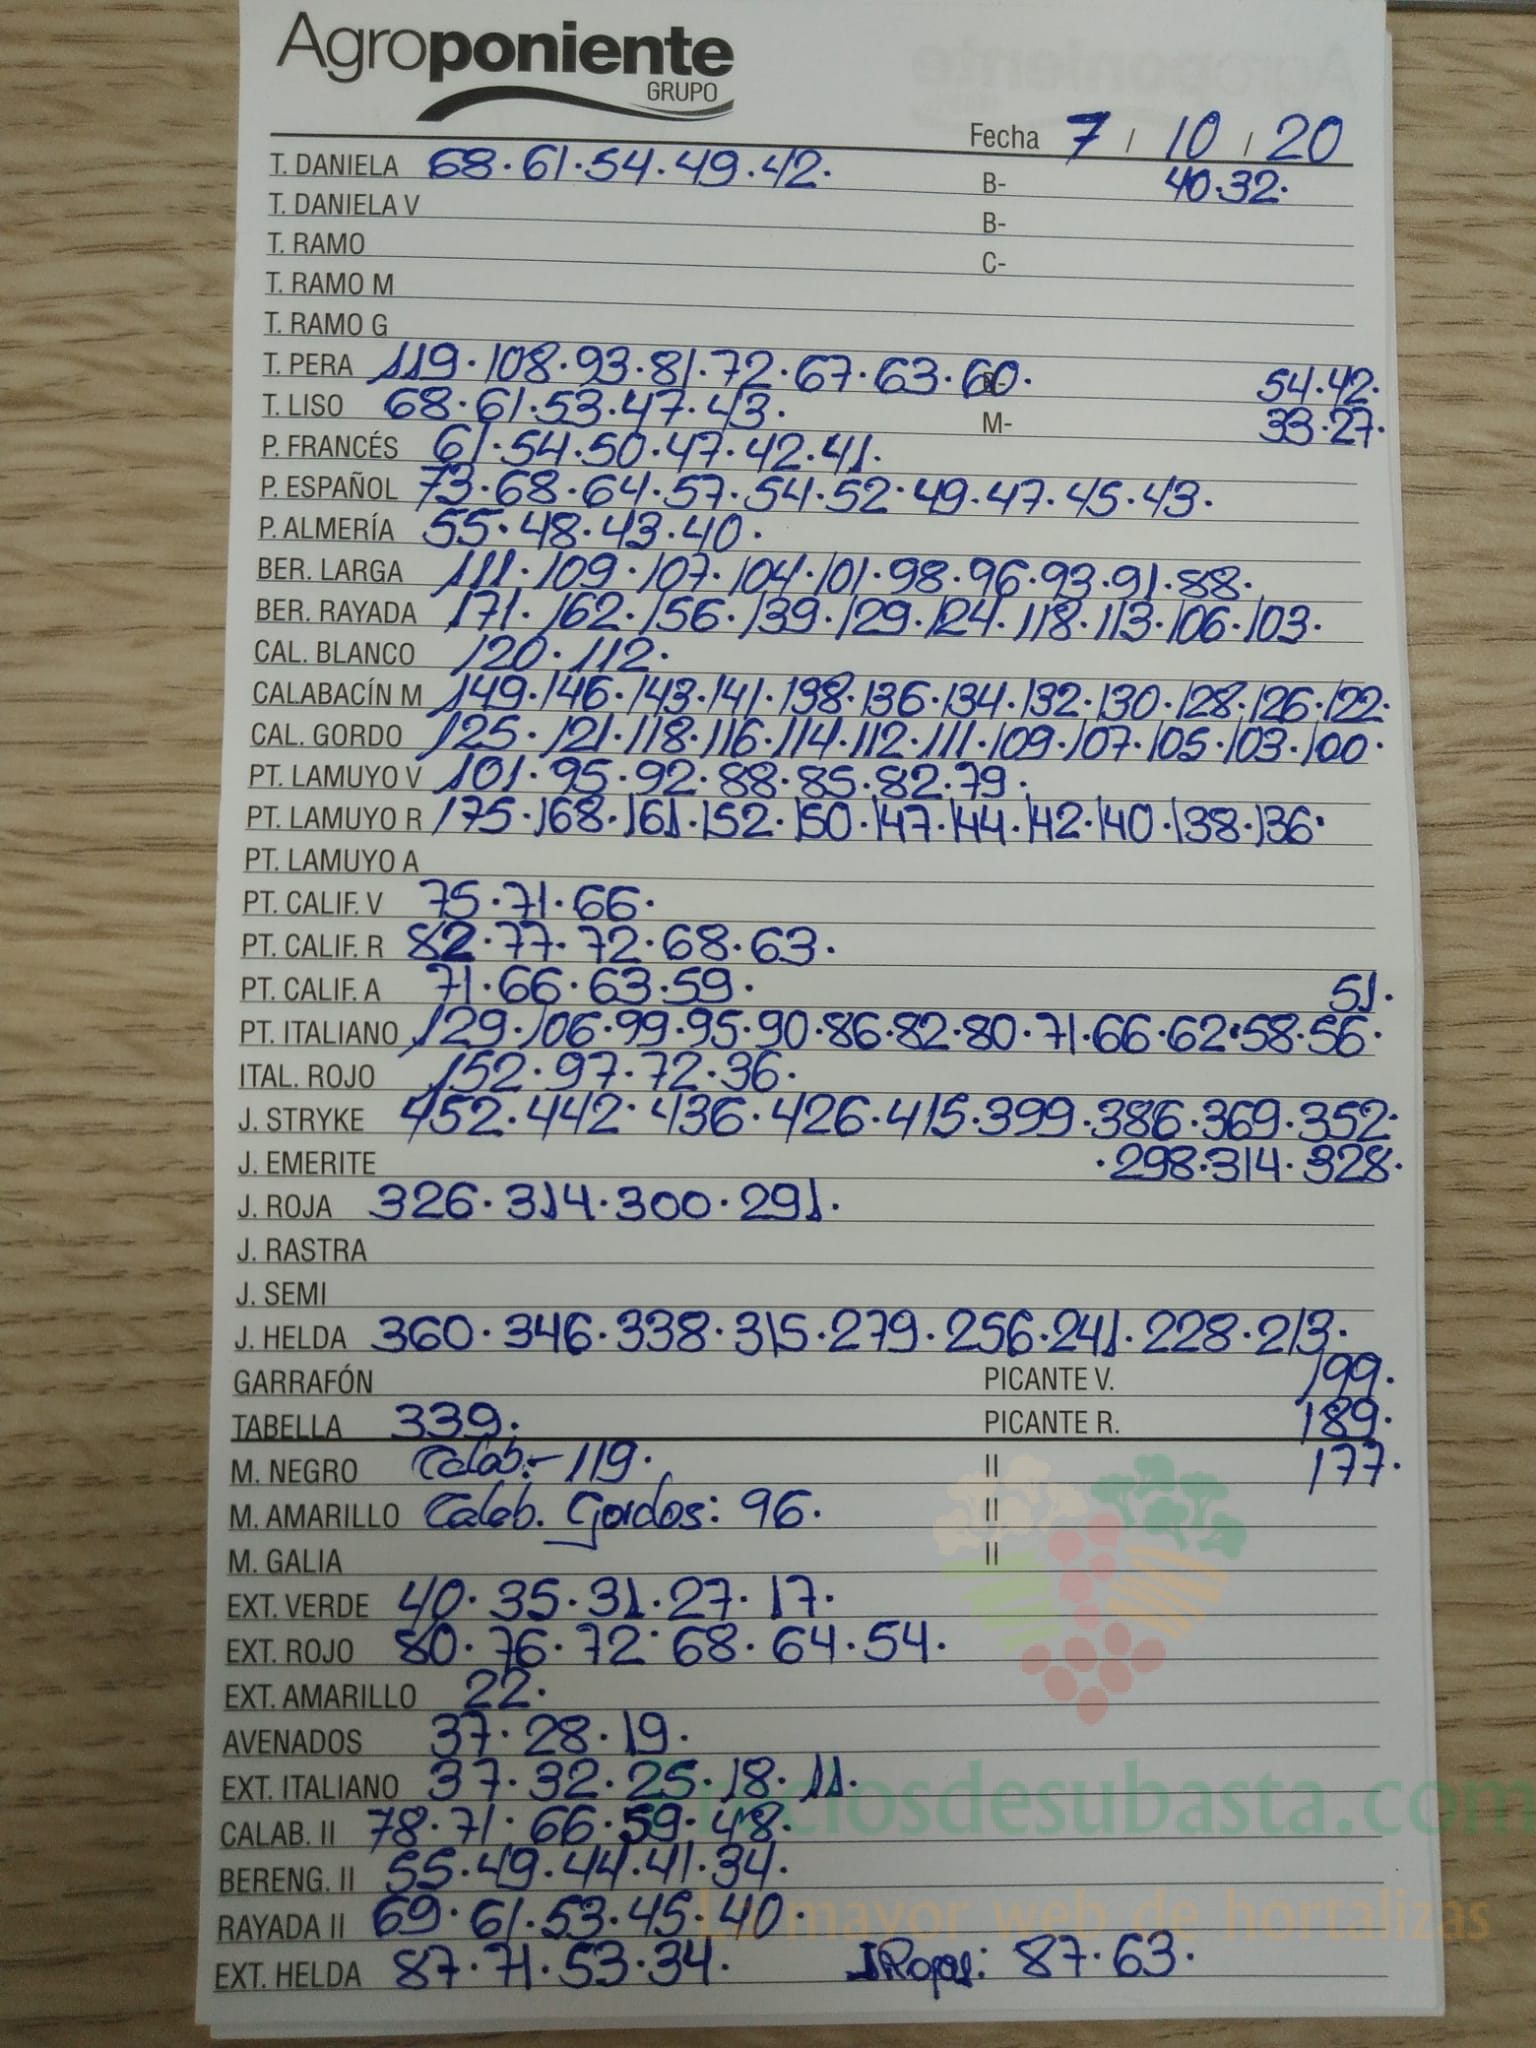 Agroponiente
GRUPO
Fecha 7 / 10 / 20
T. DANIELA 68·61·54·49·42· B- 40·32·
T. DANIELA V B-
T. RAMO C-
T. RAMO M
T. RAMO G
T. PERA 119·108·93·81·72·67·63·60· 54·42·
T. LISO 68·61·53·47·43· M- 33·27·
P. FRANCÉS 61·54·50·47·42·41·
P. ESPAÑOL 73·68·64·57·54·52·49·47·45·43·
P. ALMERÍA 55·48·43·40·
BER. LARGA 111·109·107·104·101·98·96·93·91·88·
BER. RAYADA 171·162·156·139·129·124·118·113·106·103·
CAL. BLANCO 120·112·
CALABACÍN M 149·146·143·141·138·136·134·132·130·128·126·122·
CAL. GORDO 125·121·118·116·114·112·111·109·107·105·103·100·
PT. LAMUYO V 101·95·92·88·85·82·79·
PT. LAMUYO R 175·168·161·152·150·147·144·142·140·138·136·
PT. LAMUYO A
PT. CALIF. V 75·71·66·
PT. CALIF. R 82·77·72·68·63·
PT. CALIF. A 71·66·63·59· 51·
PT. ITALIANO 129·106·99·95·90·86·82·80·71·66·62·58·56·
ITAL. ROJO 152·97·72·36·
J. STRYKE 452·442·436·426·415·399·386·369·352·
J. EMERITE ·298·314·328·
J. ROJA 326·314·300·291·
J. RASTRA
J. SEMI
J. HELDA 360·346·338·315·279·256·241·228·213·
GARRAFÓN PICANTE V. 199·
TABELLA 339· PICANTE R. 189·
M. NEGRO Calab.- 119· II 177·
M. AMARILLO Calab. Gordos: 96· II
M. GALIA II
EXT. VERDE 40·35·31·27·17·
EXT. ROJO 80·76·72·68·64·54·
EXT. AMARILLO 22·
AVENADOS 37·28·19·
EXT. ITALIANO 37·32·25·18·11·
preciosdesubasta.com
CALAB. II 78·71·66·59·48·
BERENG. II 55·49·44·41·34·
RAYADA II 69·61·53·45·40·
La mayor web de hortalizas
EXT. HELDA 87·71·53·34· JRojas: 87·63·